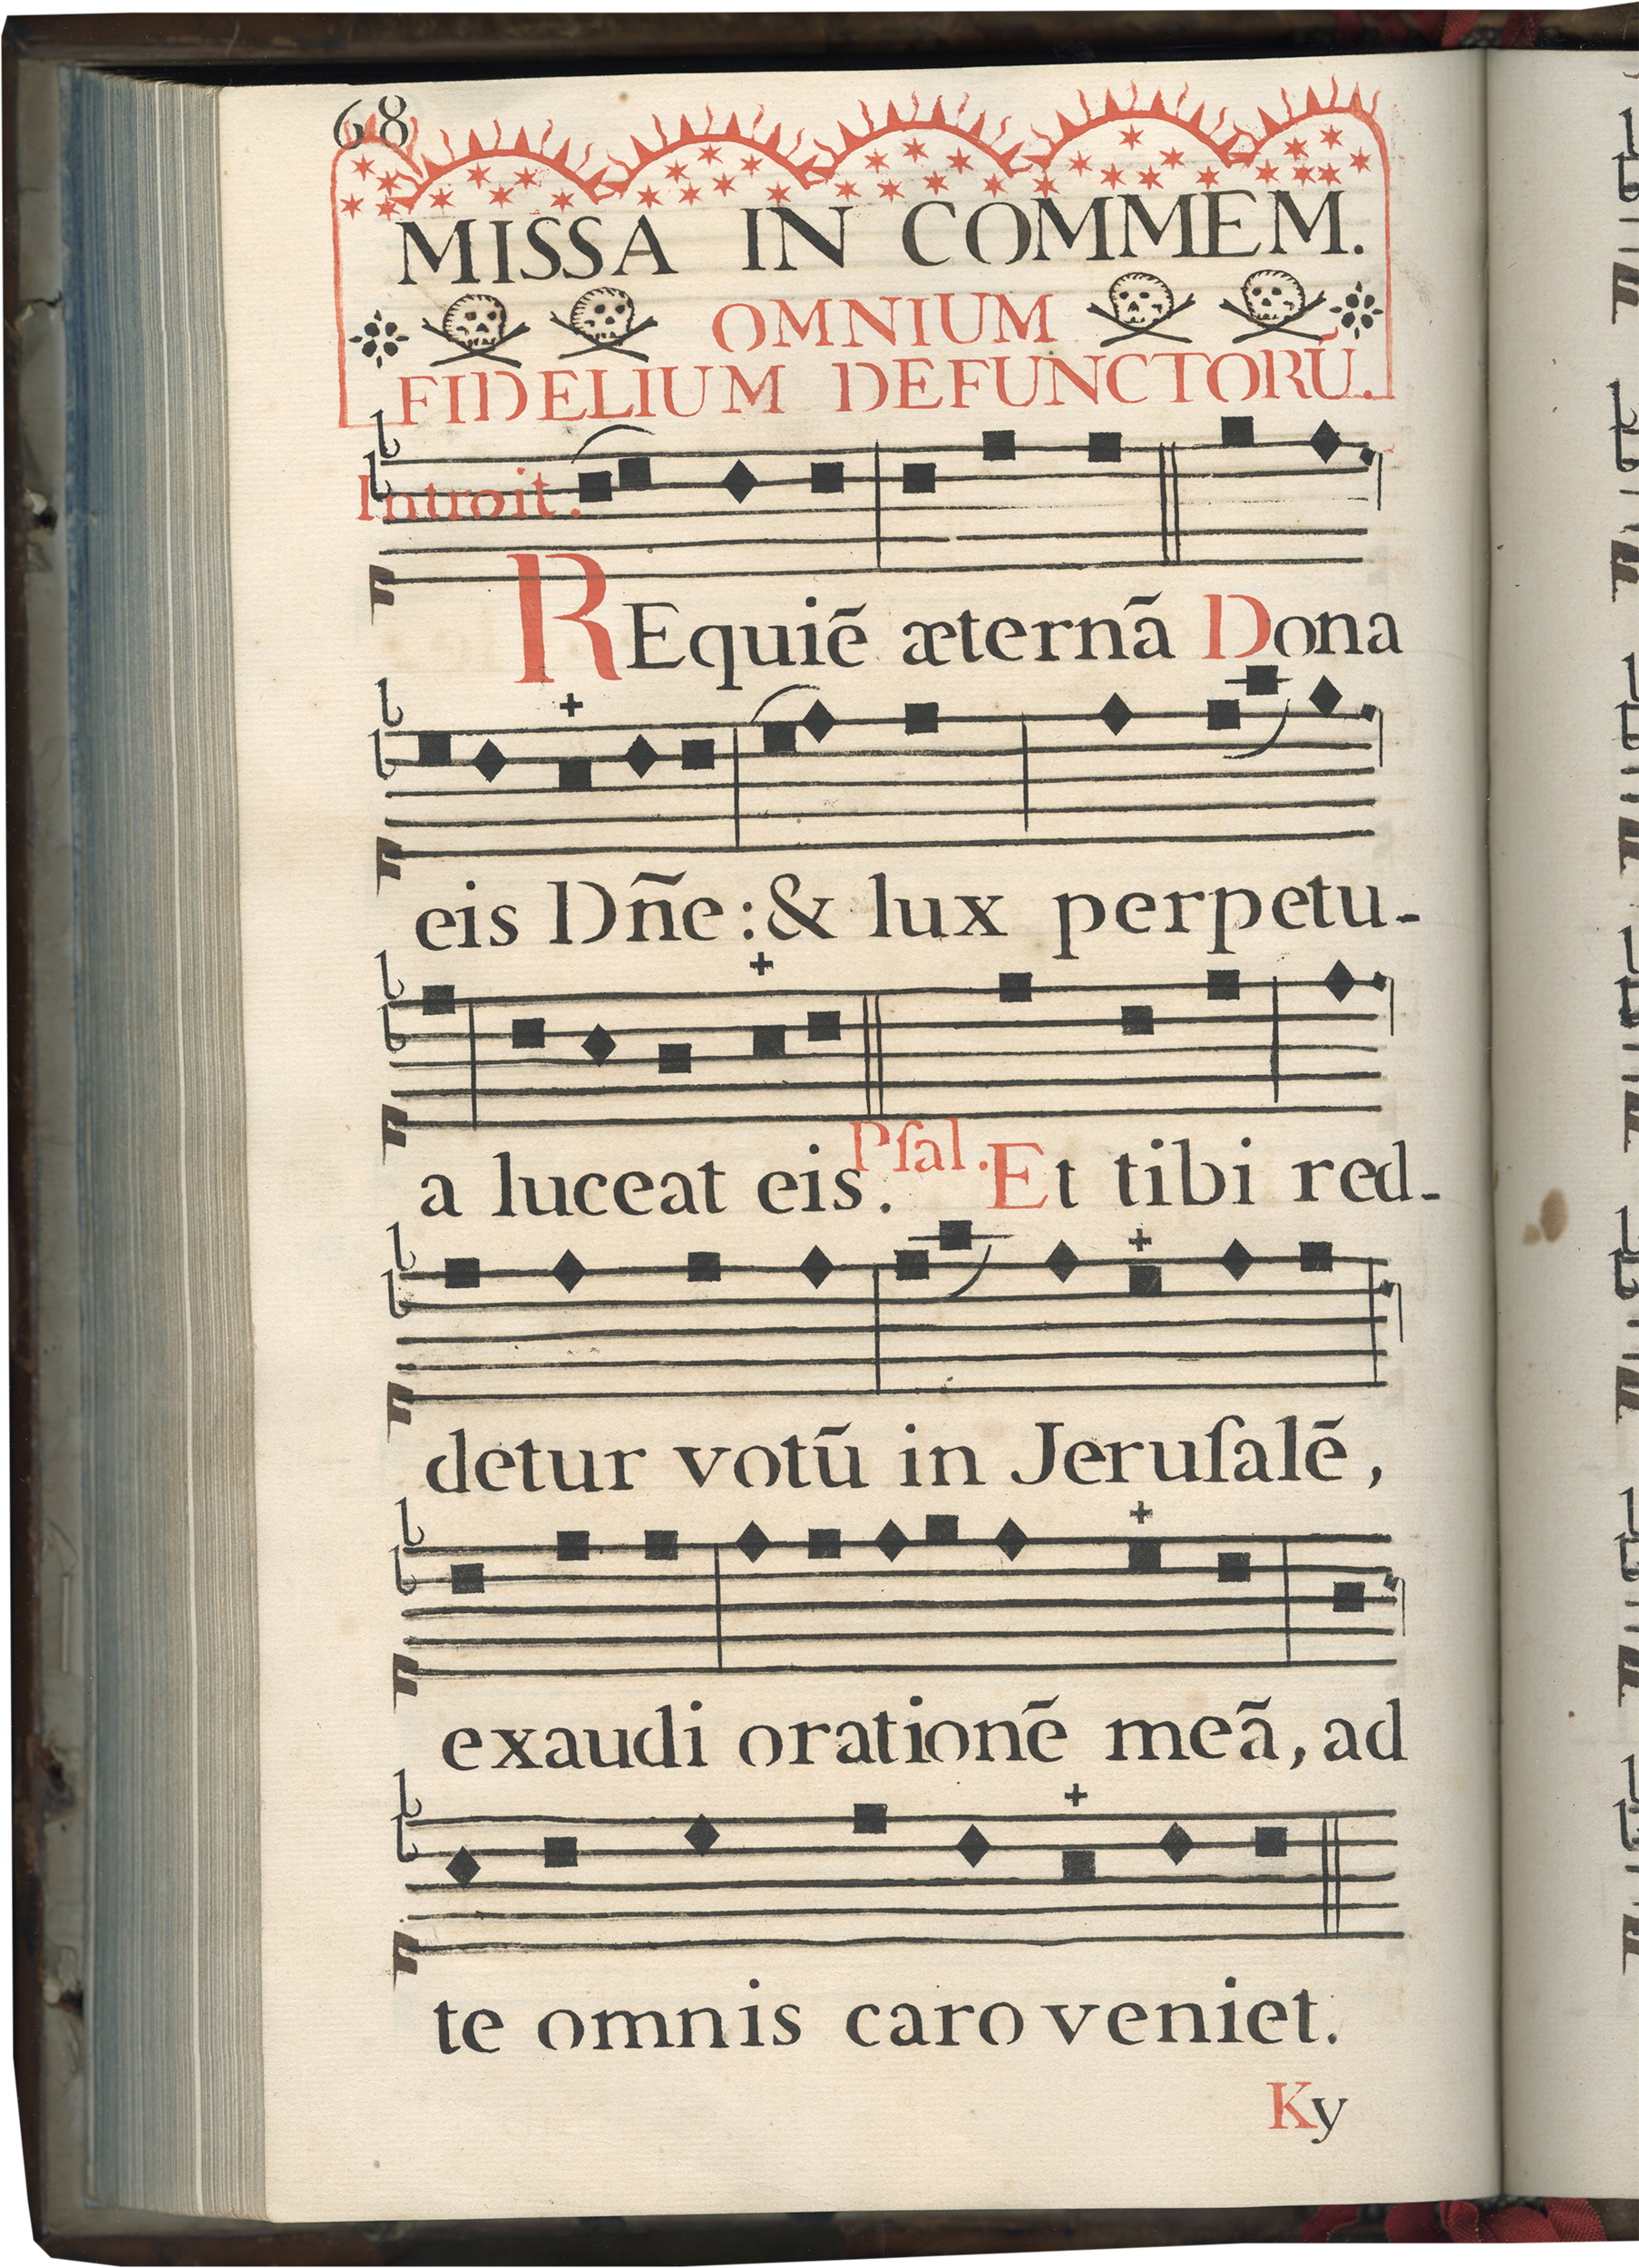 68
MISSA IN COMMEM.
OMNIUM
FIDELIUM DEFUNCTORŪ.
Introit.
REquiē æternā Dona
eis Dñe: & lux perpetu-
a luceat eis. Pſal. Et tibi red-
detur votū in Jeruſalē,
exaudi orationē meā, ad
te omnis caro veniet.
Ky